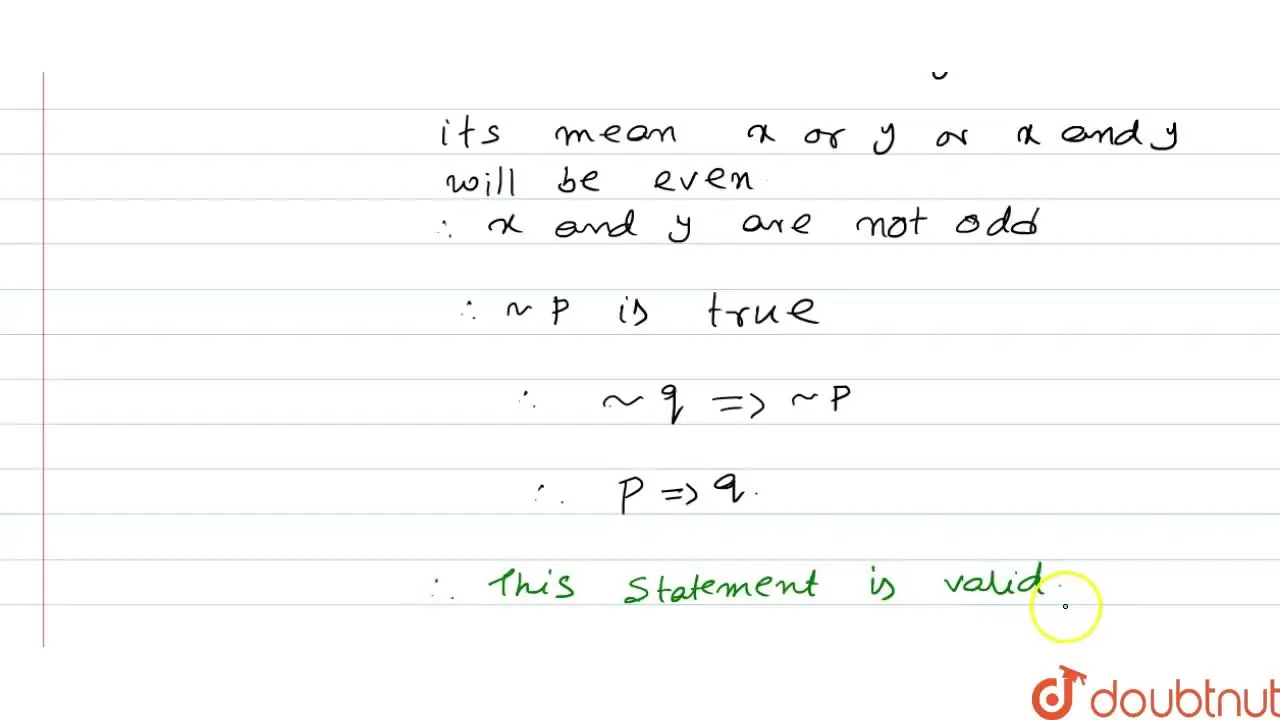 its mean x or y or x and y
will be even
∴ x and y are not odd
∴ ~p is true
∴ ~q => ~p
∴ p => q.
∴ This statement is valid.
doubtnut